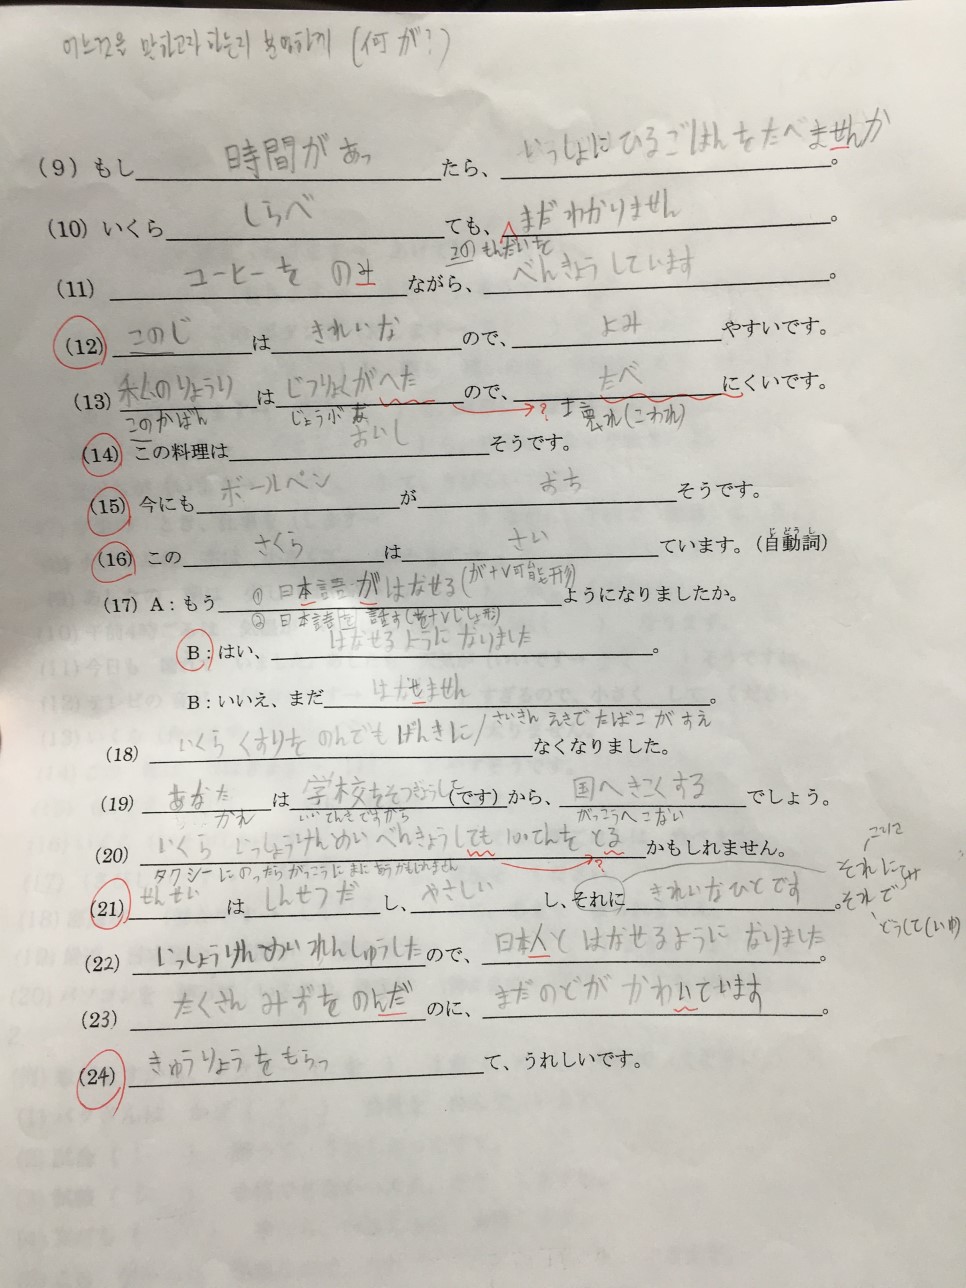 어느것을 말하고자 하는지 분명하게 (何が?)
(9) もし 時間があっ たら、 いっしょにひるごはんをたべませんか 。
(10) いくら しらべ ても、 まだわかりません 。
このもんだいを
(11) コーヒーを のみ ながら、 べんきょうしています 。
(12) このじ は きれいな ので、 よみ やすいです。
(13) 私のりょうり は じつりょくがへた ので、 たべ にくいです。
このかばん じょうぶ 壊れ(こわれ)
(14) この料理は おいし そうです。
(15) 今にも ボールペン が おち そうです。
(16) この さくら は さい ています。(自動詞)
じどうし
(17) A:もう ① 日本語がはなせる(が+V可能形) ようになりましたか。
② 日本語を 話す(を+Vじしょ形)
B:はい、 はなせるようになりました 。
B:いいえ、まだ はなせません 。
(18) いくら くすりを のんでも げんきに/さいきん えきで たばこ が すえ なくなりました。
(19) あなた は 学校をそつぎょうした (です)から、 国へきこくする でしょう。
かれ いいてんきですから がっこうへこない
(20) いくら いっしょうけんめい べんきょうしても 100てんを とる かもしれません。
タクシーにのったらがっこうにまにあうかもしれません
(21) せんせい は しんせつだ し、 やさしい し、それに きれいなひとです 。
それに
それで
(22) いっしょうけんめい れんしゅうした ので、 日本人と はなせるように なりました 。
(23) たくさん みずを のんだ のに、 まだのどが かわいています 。
(24) きゅうりょうをもらっ て、うれしいです。